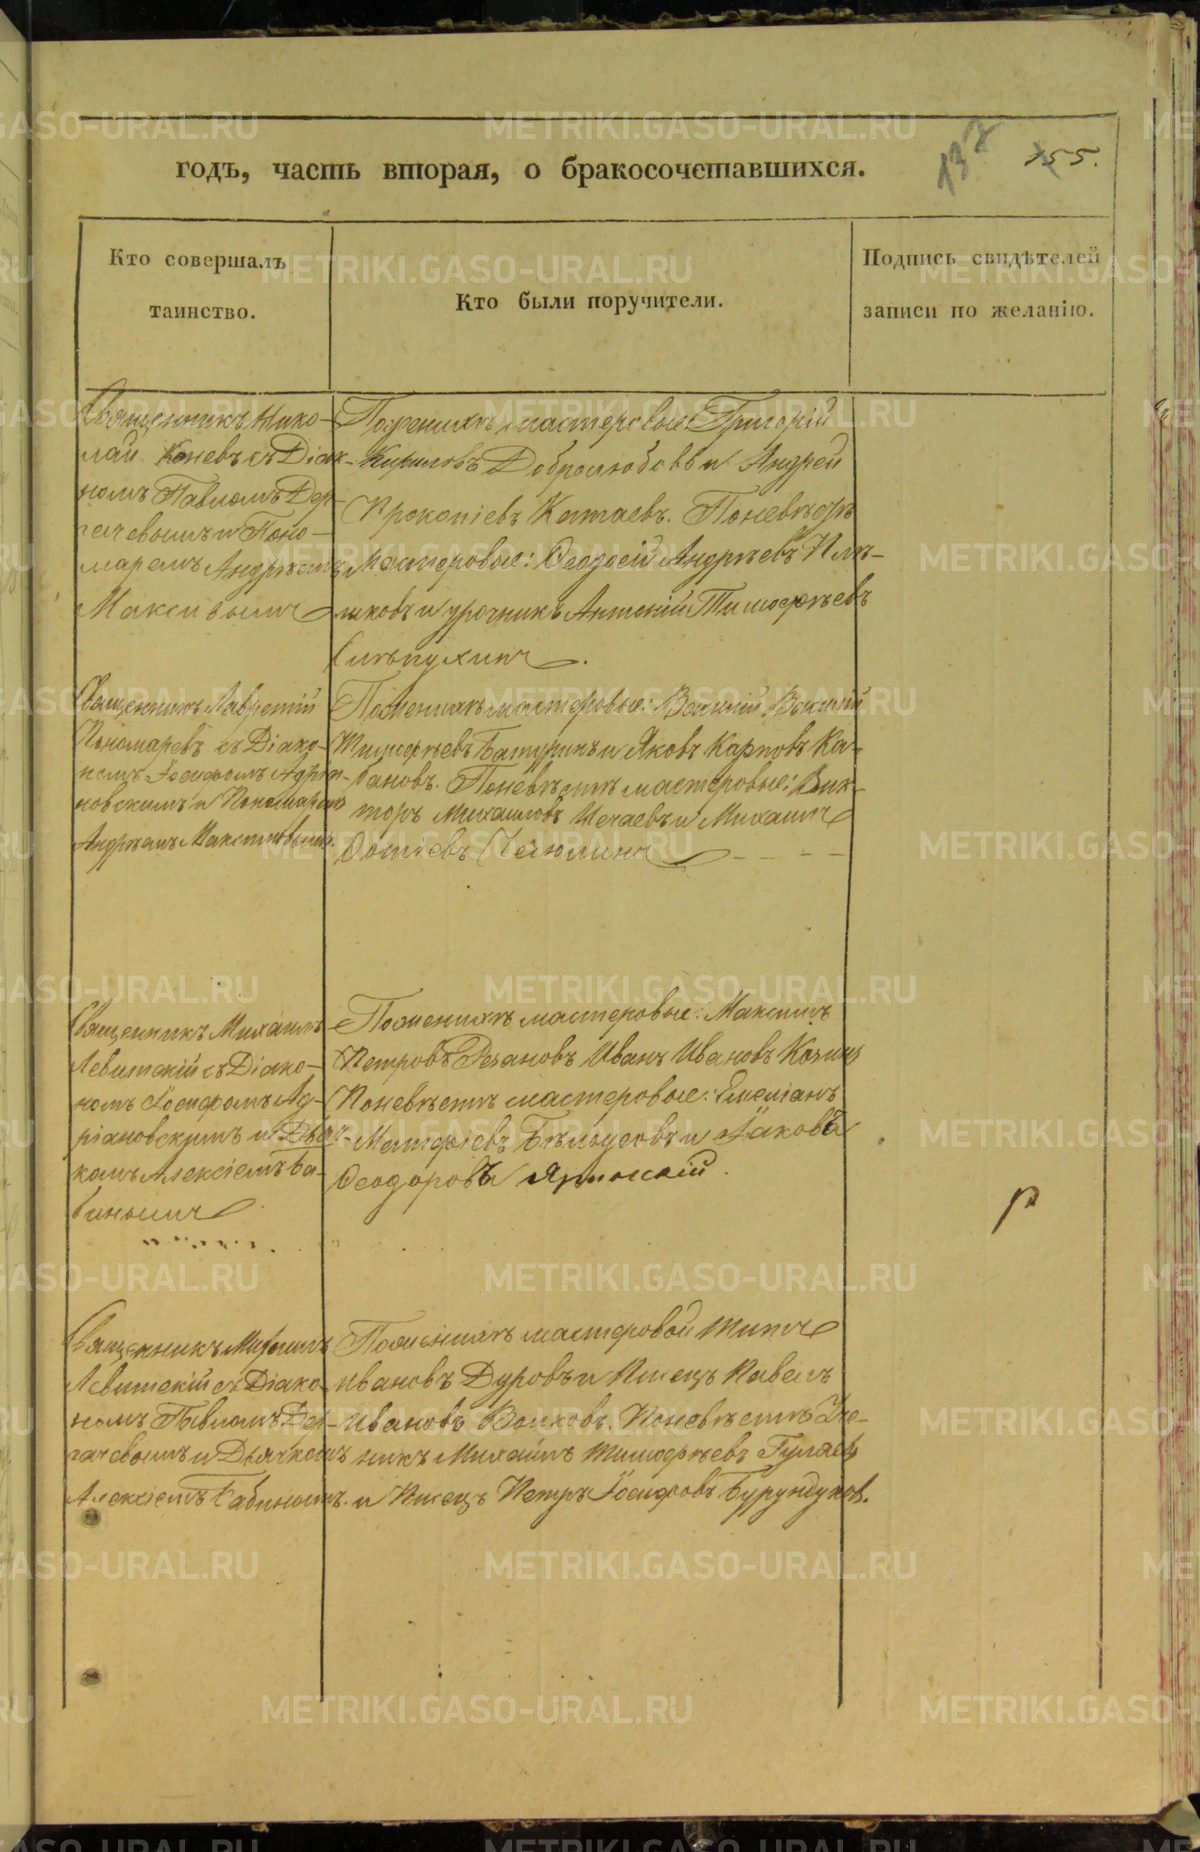 годъ, часть вторая, о бракосочетавшихся.
137
155.
Кто совершалъ
таинство.
Кто были поручители.
Подпись свидѣтелей
записи по желанію.
Священникъ Нико-
лай Коневъ съ Діако-
номъ Павломъ Дер-
гачевымъ и Поно-
маремъ Андреемъ
Максимовымъ
По женихѣ мастеровые: Григорій
Кириловъ Добролюбовъ и Андрей
Прокопіевъ Китаевъ. По невѣстѣ
мастеровые: Ѳеодосій Андреевъ
и урочникъ Антоній Тимофѣевъ
Слѣпухинъ.
Священникъ Лаврентій
Пономаревъ съ Діако-
номъ Іосифомъ Адріа-
новскимъ и Пономаремъ
Андреемъ Максимовымъ.
По женихѣ мастеровые: Василій
Тимофѣевъ Батуринъ и Яковъ Карповъ Ка-
бановъ. По невѣстѣ мастеровые: Вик-
торъ Михайловъ Нечаевъ и Михаилъ
Фотіевъ
Священникъ Михаилъ
Левитскій съ Діако-
номъ Іосифомъ Ад-
ріановскимъ и Дьяч-
комъ Алексіемъ Ба-
бинымъ.
По женихѣ мастеровые: Максимъ
Петровъ Рѣзановъ Иванъ Ивановъ
По невѣстѣ мастеровые: Емеліанъ
Матфіевъ Бѣлоусовъ и Іаковъ
Ѳеодоровъ
Священникъ Михаилъ
Левитскій съ Діако-
номъ Павломъ Дер-
гачевымъ и Дьячкомъ
Алексіемъ Бабинымъ.
По женихѣ мастеровой
Ивановъ Дуровъ и Писецъ Павелъ
Ивановъ Волковъ. По невѣстѣ Уче-
никъ Михаилъ Тимофѣевъ Гуляевъ
и Писецъ Петръ Іосифовъ Бурундуков.
METRIKI.GASO-URAL.RU